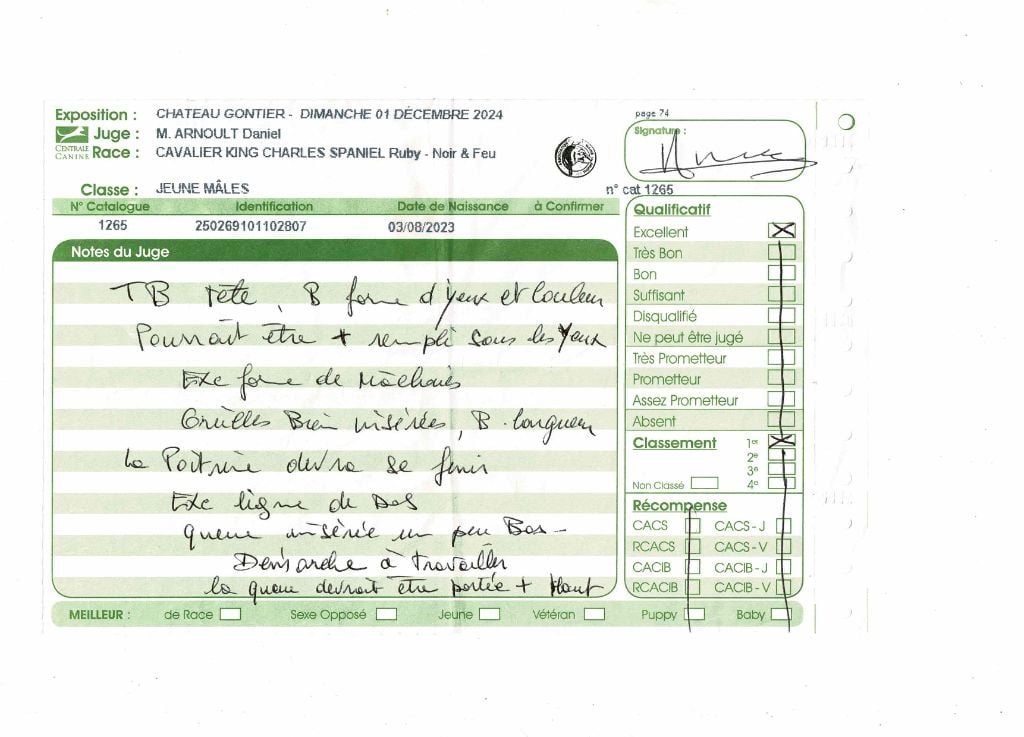 Exposition : CHATEAU GONTIER - DIMANCHE 01 DÉCEMBRE 2024
page 74
Juge : M. ARNOULT Daniel
Signature :
CENTRALE CANINE
Race : CAVALIER KING CHARLES SPANIEL Ruby - Noir & Feu
Classe : JEUNE MÂLES
n° cat 1265
N° Catalogue Identification Date de Naissance à Confirmer
1265 250269101102807 03/08/2023
Notes du Juge
TB tête, B forme d'yeux et couleur
Pourrait être + rempli sous les Yeux
Exc forme de Mâchoires
Oreilles Bien insérées, B. longueur
La Poitrine devra se finir
Exc ligne de Dos
queue insérée un peu Bas -
Démarche à travailler
la queue devrait être portée + Haut
Qualificatif
Excellent
Très Bon
Bon
Suffisant
Disqualifié
Ne peut être jugé
Très Prometteur
Prometteur
Assez Prometteur
Absent
Classement 1er
2e
3e
Non Classé 4e
Récompense
CACS CACS - J
RCACS CACS - V
CACIB CACIB - J
RCACIB CACIB - V
MEILLEUR : de Race Sexe Opposé Jeune Vétéran Puppy Baby